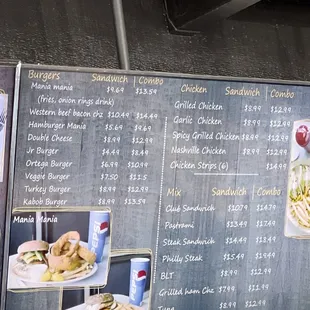 Burgers Sandwich Combo
Mania mania $9.69 $13.59
(fries, onion rings drink)
Western beef bacon chz $10.49 $14.49
Hamburger Mania $5.69 $9.69
Double Cheese $8.99 $12.99
Jr Burger $4.49 $8.49
Ortega Burger $6.99 $10.99
Veggie Burger $7.50 $11.5
Turkey Burger $8.99 $12.99
Kabob Burger $8.99 $13.59
Mania Mania
pepsi
pepsi
Chicken Sandwich Combo
Grilled Chicken $8.99 $12.99
Garlic Chicken $8.99 $12.99
Spicy Grilled Chicken $8.99 $12.99
Nashville Chicken $8.99 $12.99
Chicken Strips (6) $14.99
Mix Sandwich Combo
Club Sandwich $10.79 $14.79
Pastrami $13.49 $17.49
Steak Sandwich $14.49 $18.49
Philly Steak $15.49 $19.49
BLT $8.99 $12.99
Grilled ham Chz $7.99 $11.99
Tuna $8.99 $12.99